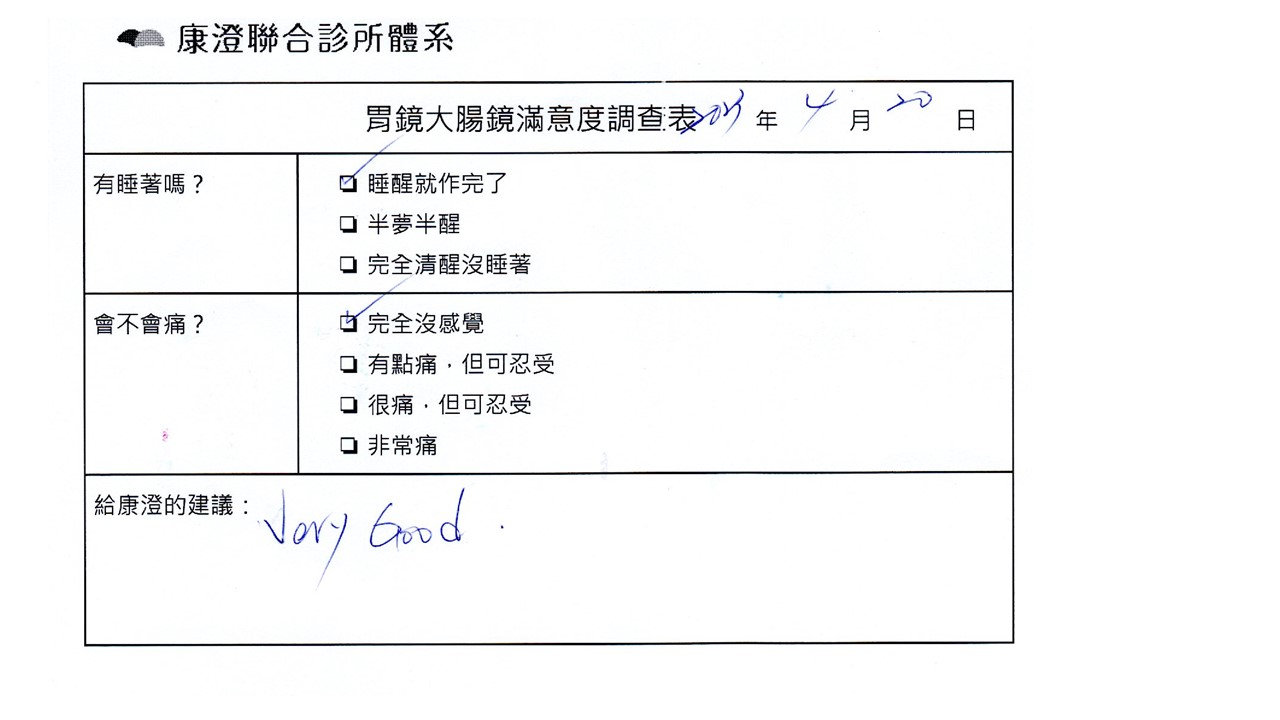 康澄聯合診所體系
胃鏡大腸鏡滿意度調查表 年 4 月 20 日
有睡著嗎？
睡醒就作完了
半夢半醒
完全清醒沒睡著
會不會痛？
完全沒感覺
有點痛，但可忍受
很痛，但可忍受
非常痛
給康澄的建議：Very Good .